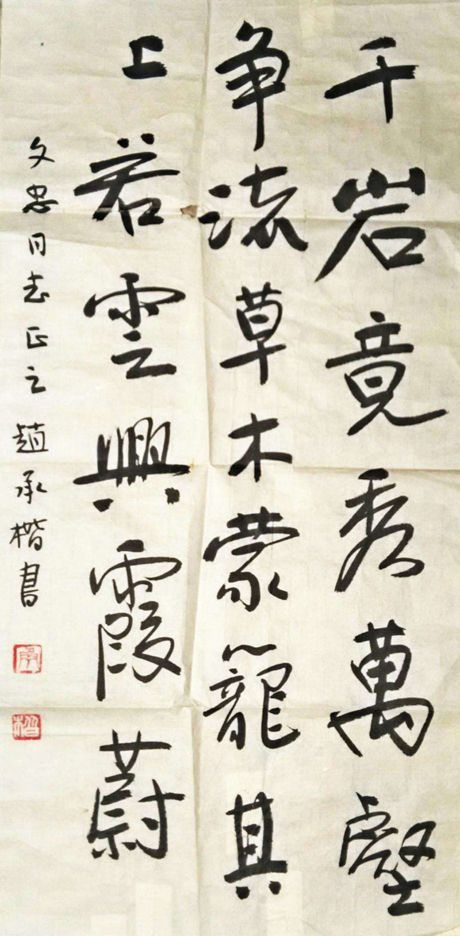 千岩竟秀萬壑
争流草木蒙籠其
上若雲興霞蔚
文忠同志正之 趙承楷書
承
楷